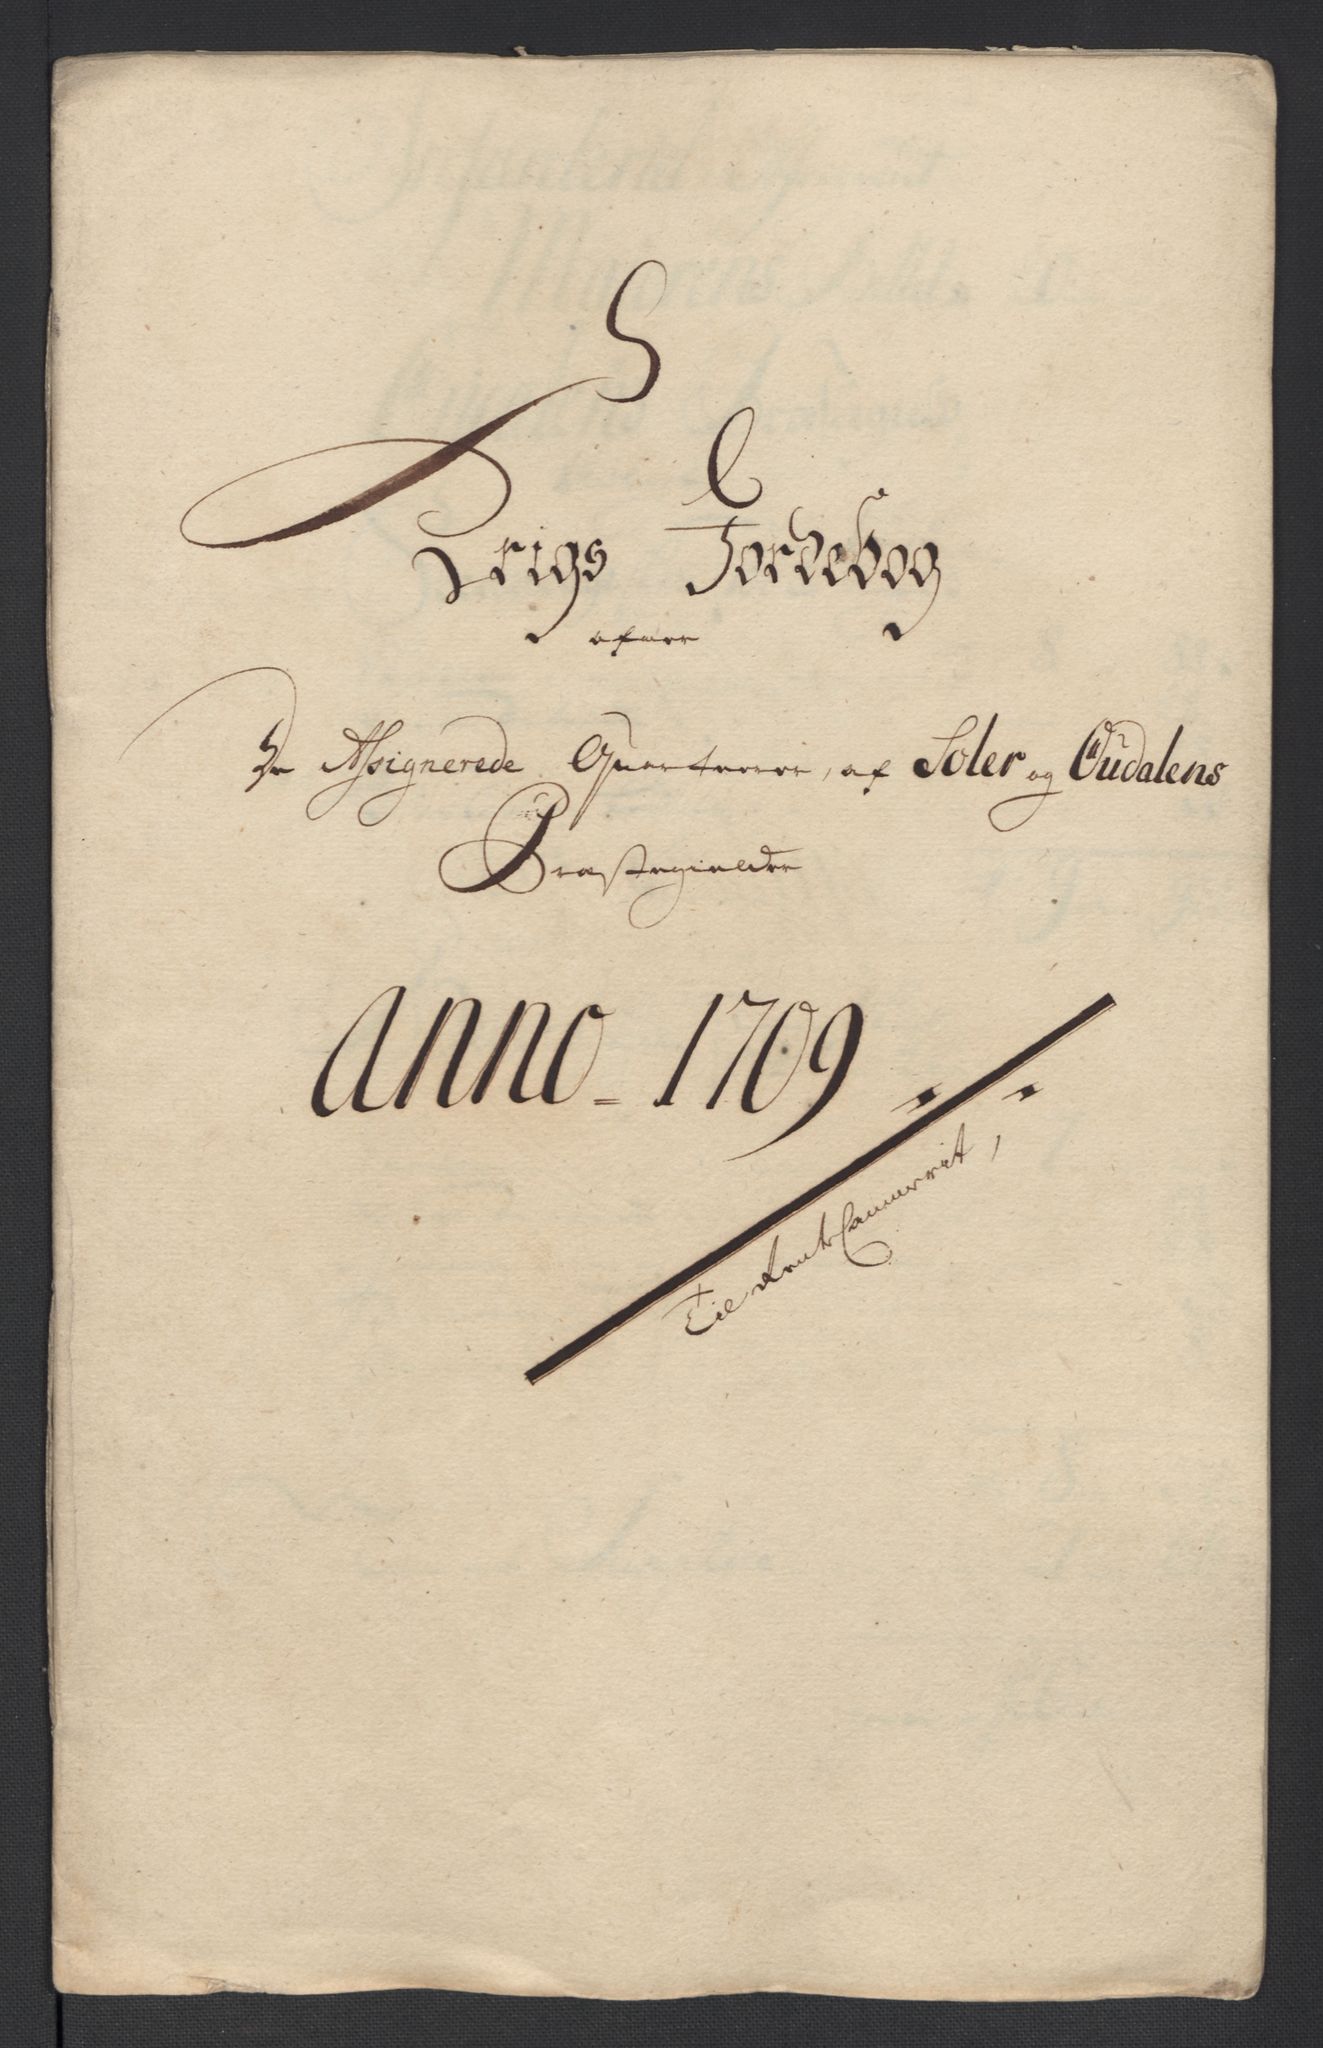 Krigs Jordebog
ofver
De Assignerede Quarterer, af Soler og Oudalens
Præstegielder
Anno 1709
Til Rente Cammerit,